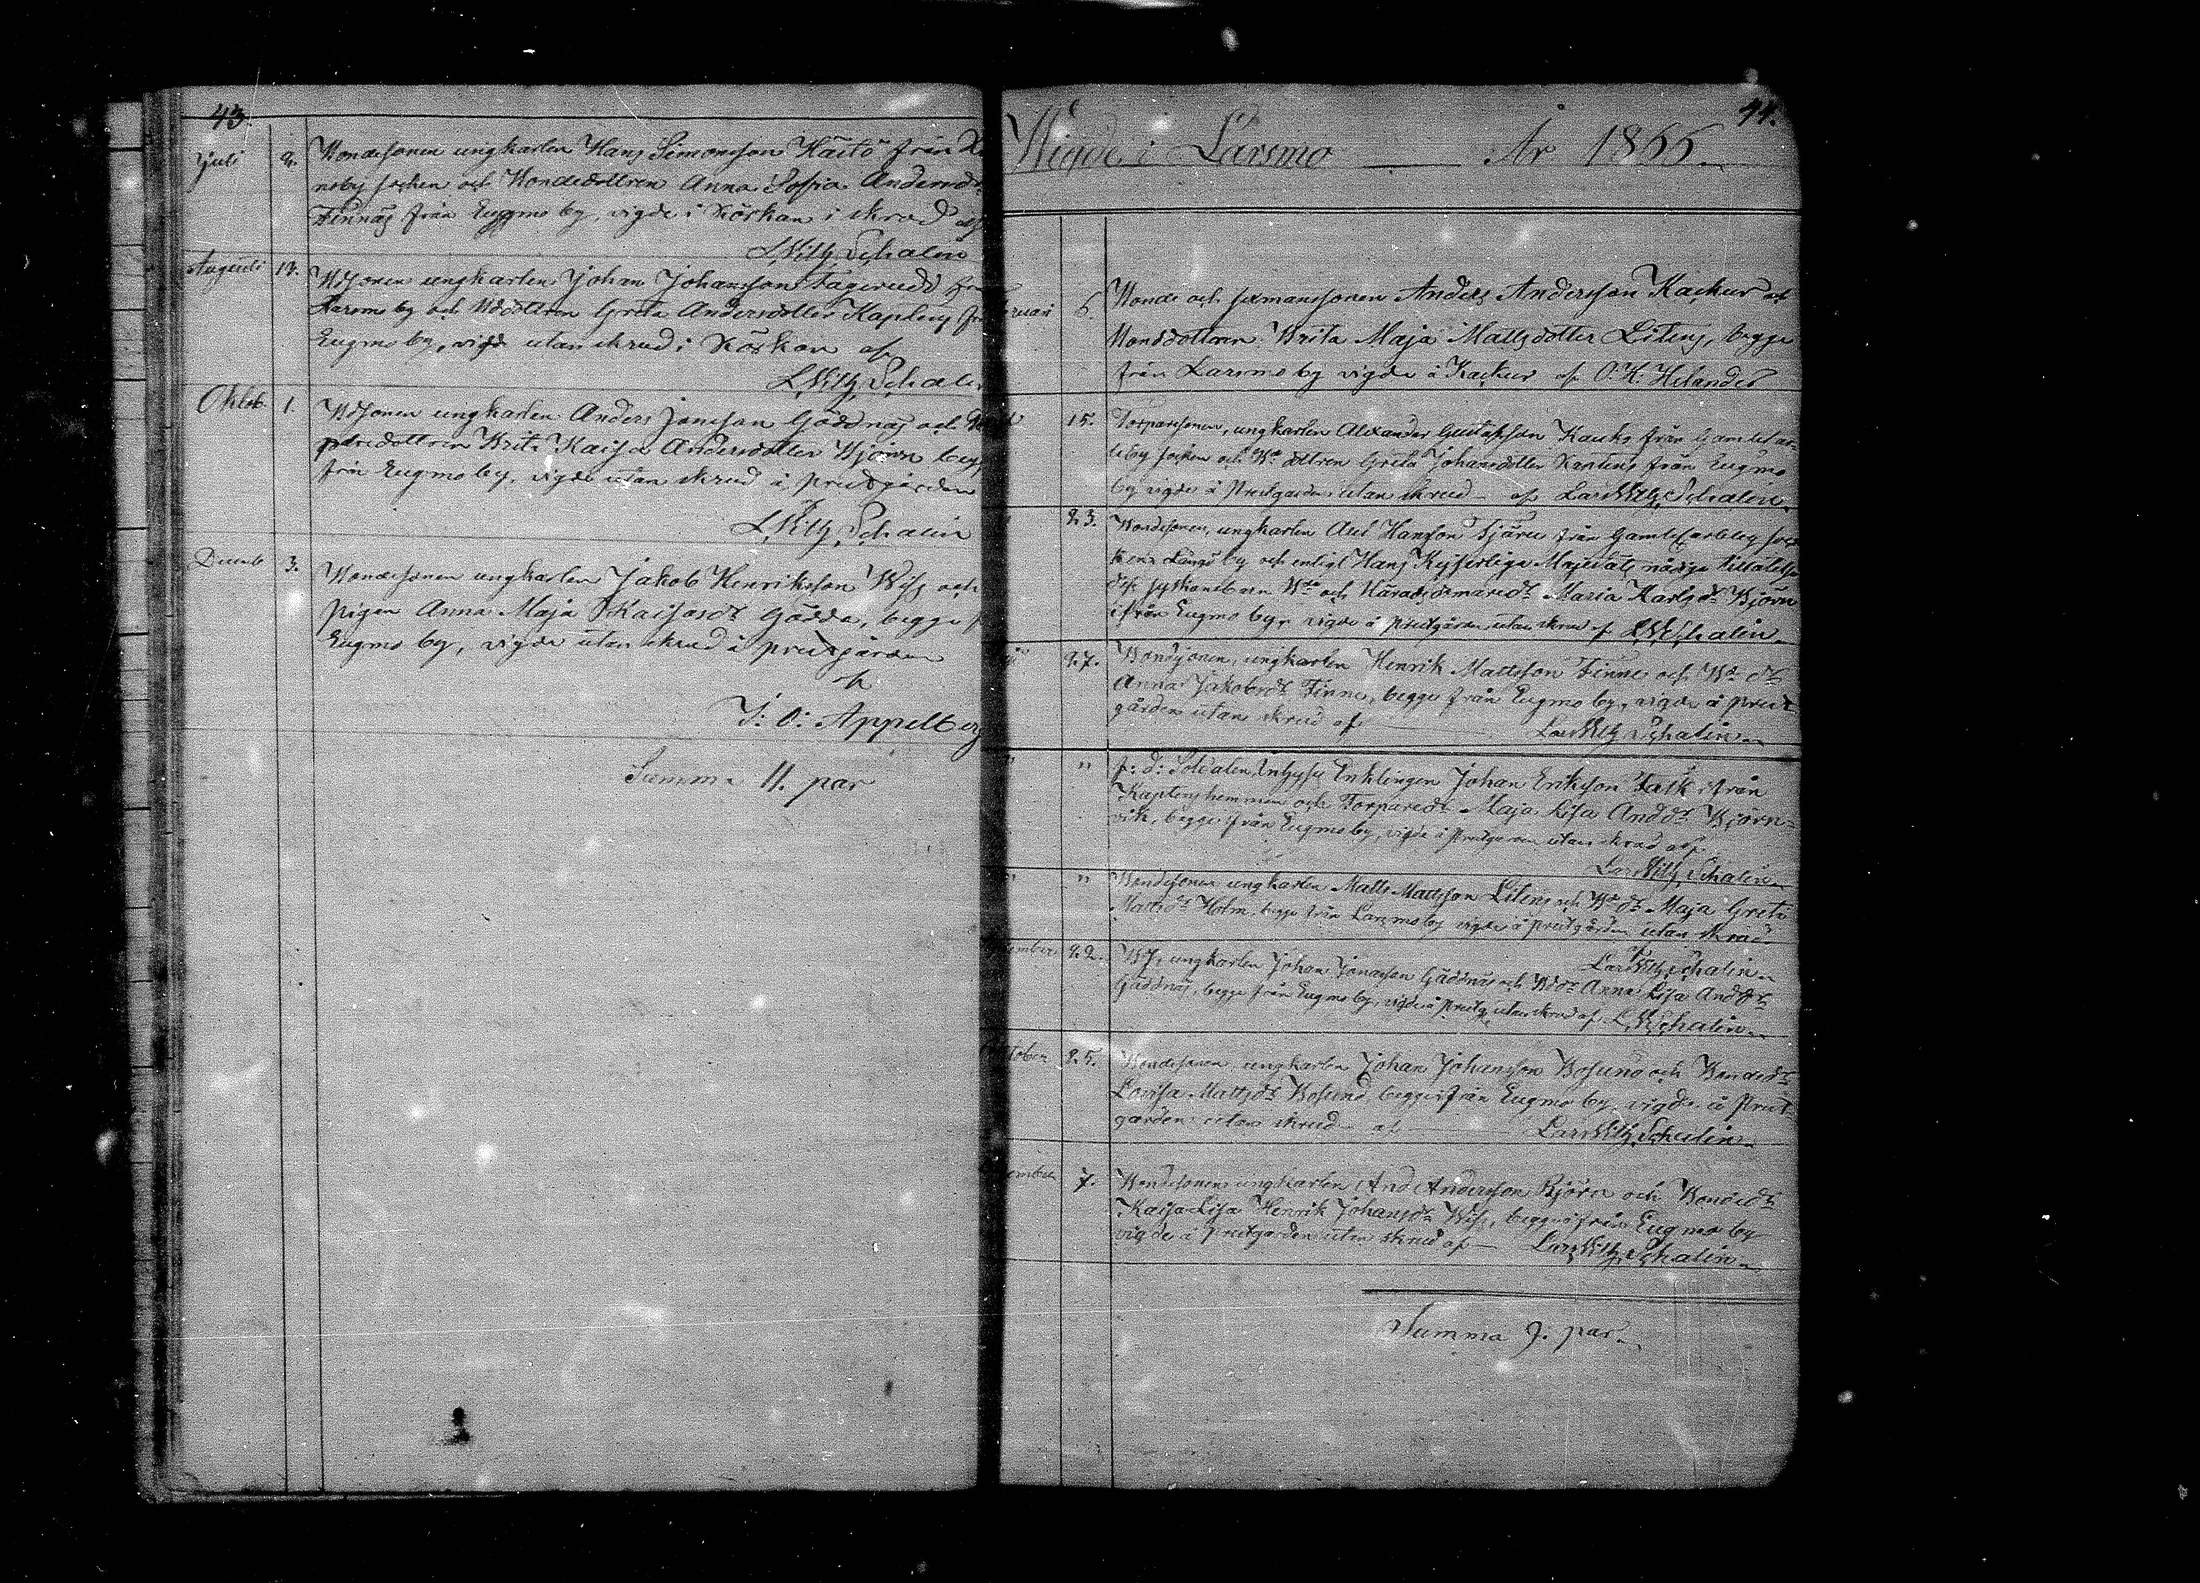 43.
Juli 2. Bondesonen ungkarlen Hans Simonsson Hästö från
neby socken och Bondedottren Anna Sofia Andersdr
Finnäs från Eugmo by, vigde i Kyrkan i skrud af
L. Wilh. Schalin
Augusti 12. Bdsonen ungkarlen Johan Johansson Fagerudd från
Larsmo by och Bddottren Greta Andersdotter Kaplens
Eugmo by, vigde utan skrud i Kyrkan af
L. Wilh. Schalin
Oktob. 1. Bdsonen ungkarlen Anders Jonsson Gäddnäs och
paredottren Brita Kaisa Andersdotter Björn begge
från Eugmo by, vigde utan skrud å prestgården
af
L. Wilh. Schalin
Decemb 3. Bondesonen ungkarlen Jakob Henriksson Wiss och
pigan Anna Maja Kaisasdr Gädda, begge f
Eugmo by, vigde utan skrud å prestgården
af
J: O: Appelberg
Summa 11. par
44.
Wigde i Larsmo År 1866.
ruari 6. Bonde och sexmanssonen Anders Andersson Kackur och
Bonddottren Brita Maja Mattsdotter Litens, begge
från Larsmo by vigde å Kackur af O. H. Helander
15. Torparesonen, ungkarlen Alexander Gustafsson Kauks från Gamlekar-
leby socken och Bde dottren Greta Johansdotter från Eugmo
by vigde å Prestgården utan skrud af Lars Wilh. Schalin
23. Bondesonen, ungkarlen And Hansson Bjåre från Gamlekarleby soc-
kens by och enligt Hans Kejserliga Majestäts nådiga tillåtelse
dess syskonebarn Bde och Häradsdomaredr Maria Karlsdr Björn
ifrån Eugmo by vigde å prestgården utan skrud af L W Schalin
27. Bondsonen, ungkarlen Henrik Mattsson Finne och Bde dr
Anna Jakobsdr Finne, begge från Eugmo by, vigde å prest-
gården utan skrud af Lars Wilh Schalin
" " f: d: Soldaten, Inhyses Enklingen Johan Eriksson Falk ifrån
Kaplens hemman och Torparedr Maja Lisa Andsdr Björn-
vik, begge från Eugmo by, vigde å prestgården utan skrud af
Lars Wilh. Schalin
" " Bondesonen ungkarlen Matts Mattsson Litens och Bde dr Maja Greta
Mattsdr Holm, begge från Larsmo by vigde å prestgården utan skrud
af
Lars Wilh. Schalin
ember 22. BdS, ungkarlen Johan Jonasson Gäddnäs och Bddr Anna Lisa Andsdr
Gäddnäs, begge från Eugmo by, vigde å prestg. utan skrud af L. W. Schalin
tober 25. Bondesonen, ungkarlen Johan Johansson Bosund och Bondedr
Lovisa Mattsdr Bosund, begge ifrån Eugmo by, vigde å Prest-
gården utan skrud af Lars Wilh. Schalin
ember 7. Bondesonen ungkarlen And Andersson Björn och Bondedr
Kaisa Lisa Henrik Johansdr Wiss, begge ifrån Eugmo by
vigde å prestgården utan skrud af Lars Wilh. Schalin
Summa 9. par